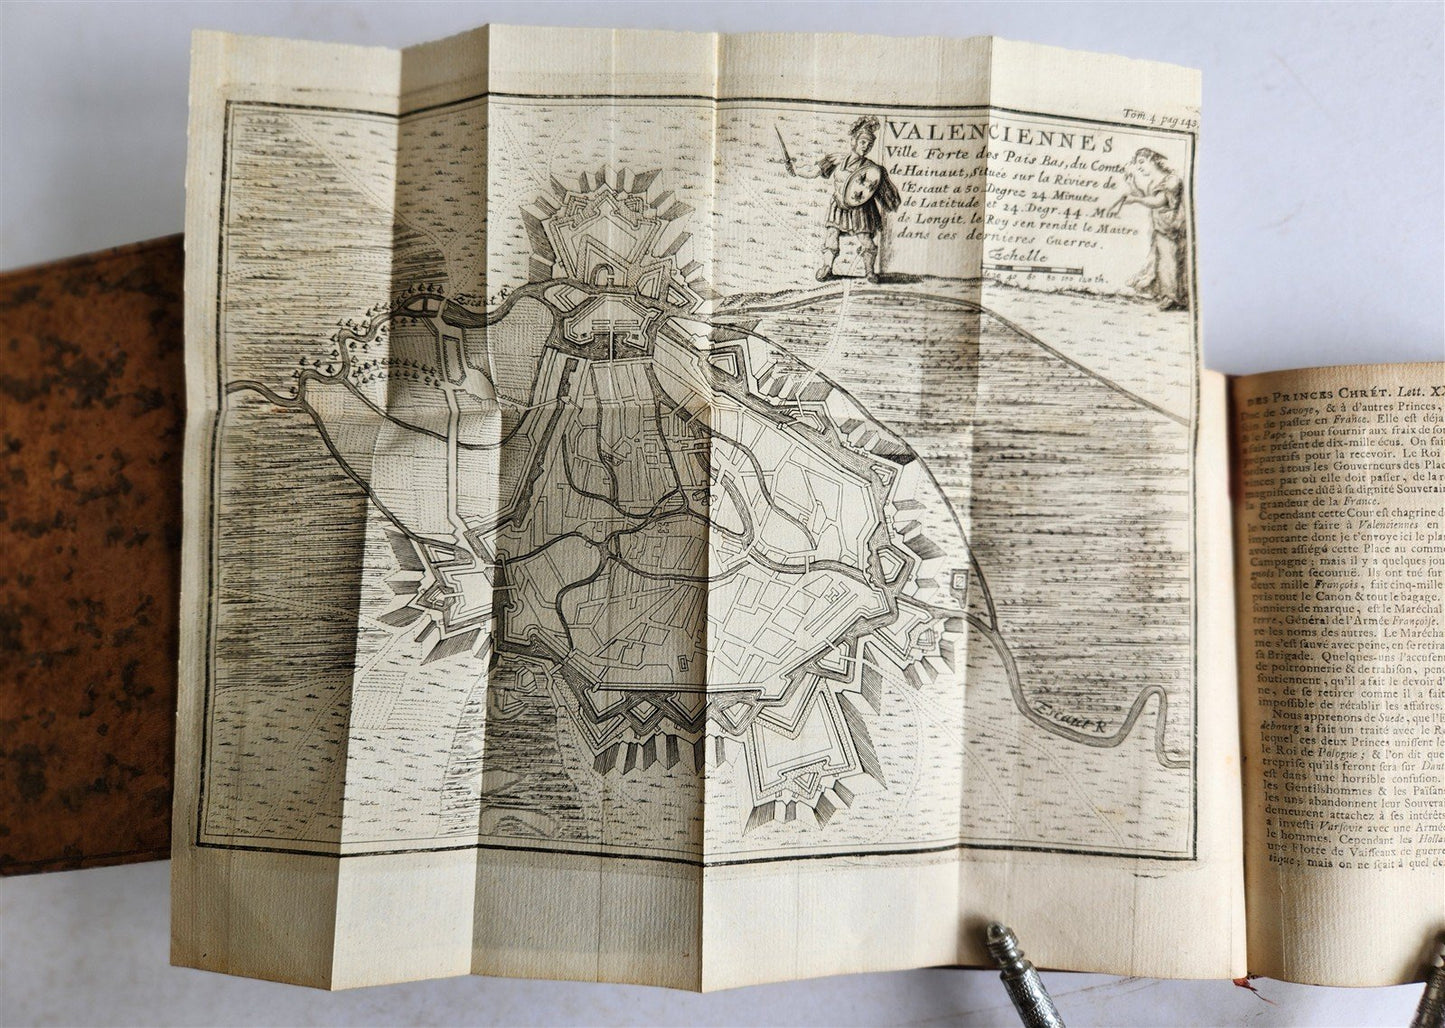 Tom 4 pag 143.
VALENCIENNES
Ville Forte des Pais Bas, du Comté
de Hainaut, Située sur la Riviere de
l'Escaut a 50 Degrez 24 Minutes
de Latitude et 24 Degr. 44. Min.
de Longit. le Roy s'en rendit le Maitre
dans ces dernieres Guerres.
Echelle
40 60 80 100 120 th.
Escaut R.
Escaut R.
DES PRINCES CHRÉT. Lett. XL
Duc de Savoye, & à d'autres Princes,
de passer en France. Elle est déja
le Pape, pour fournir aux fraix de son
présent de dix-mille écus. On fait
préparatifs pour la recevoir. Le Roi
à tous les Gouverneurs des Plac
vinces par où elle doit passer, de la r
magnificence dûë à sa dignité Souverain
la grandeur de la France.
Cependant cette Cour est chagrine d
le vient de faire à Valenciennes en
importante dont je t'envoye ici le plan
avoient assiégé cette Place au comme
Campagne; mais il y a quelques jou
l'ont secouruë. Ils ont tué sur
deux mille François, fait cinq-mille
pris tout le Canon & tout le bagage.
sonniers de marque, est le Maréchal
terre, Général de l'Armée Françoise.
re les noms des autres. Le Marécha
me s'est sauvé avec peine, en se retira
sa Brigade. Quelques-uns l'accusen
de poltronnerie & de trahison, pend
soutiennent, qu'il a fait le devoir d'
ne, de se retirer comme il a fait
impossible de rétablir les affaires.
Nous apprenons de Suede, que l'E
debourg a fait un traité avec le R
lequel ces deux Princes unissent le
le Roi de Pologne; & l'on dit que
treprise qu'ils feront sera sur Dant
est dans une horrible confusion.
les Gentilshommes & les Païsan
les uns abandonnent leur Souvera
demeurent attachez à ses intérêts
a investi Varsovie avec une Armé
le hommes. Cependant les Holla
une Flotte de Vaisseaux de guerre
tique; mais on ne sçait à quel de